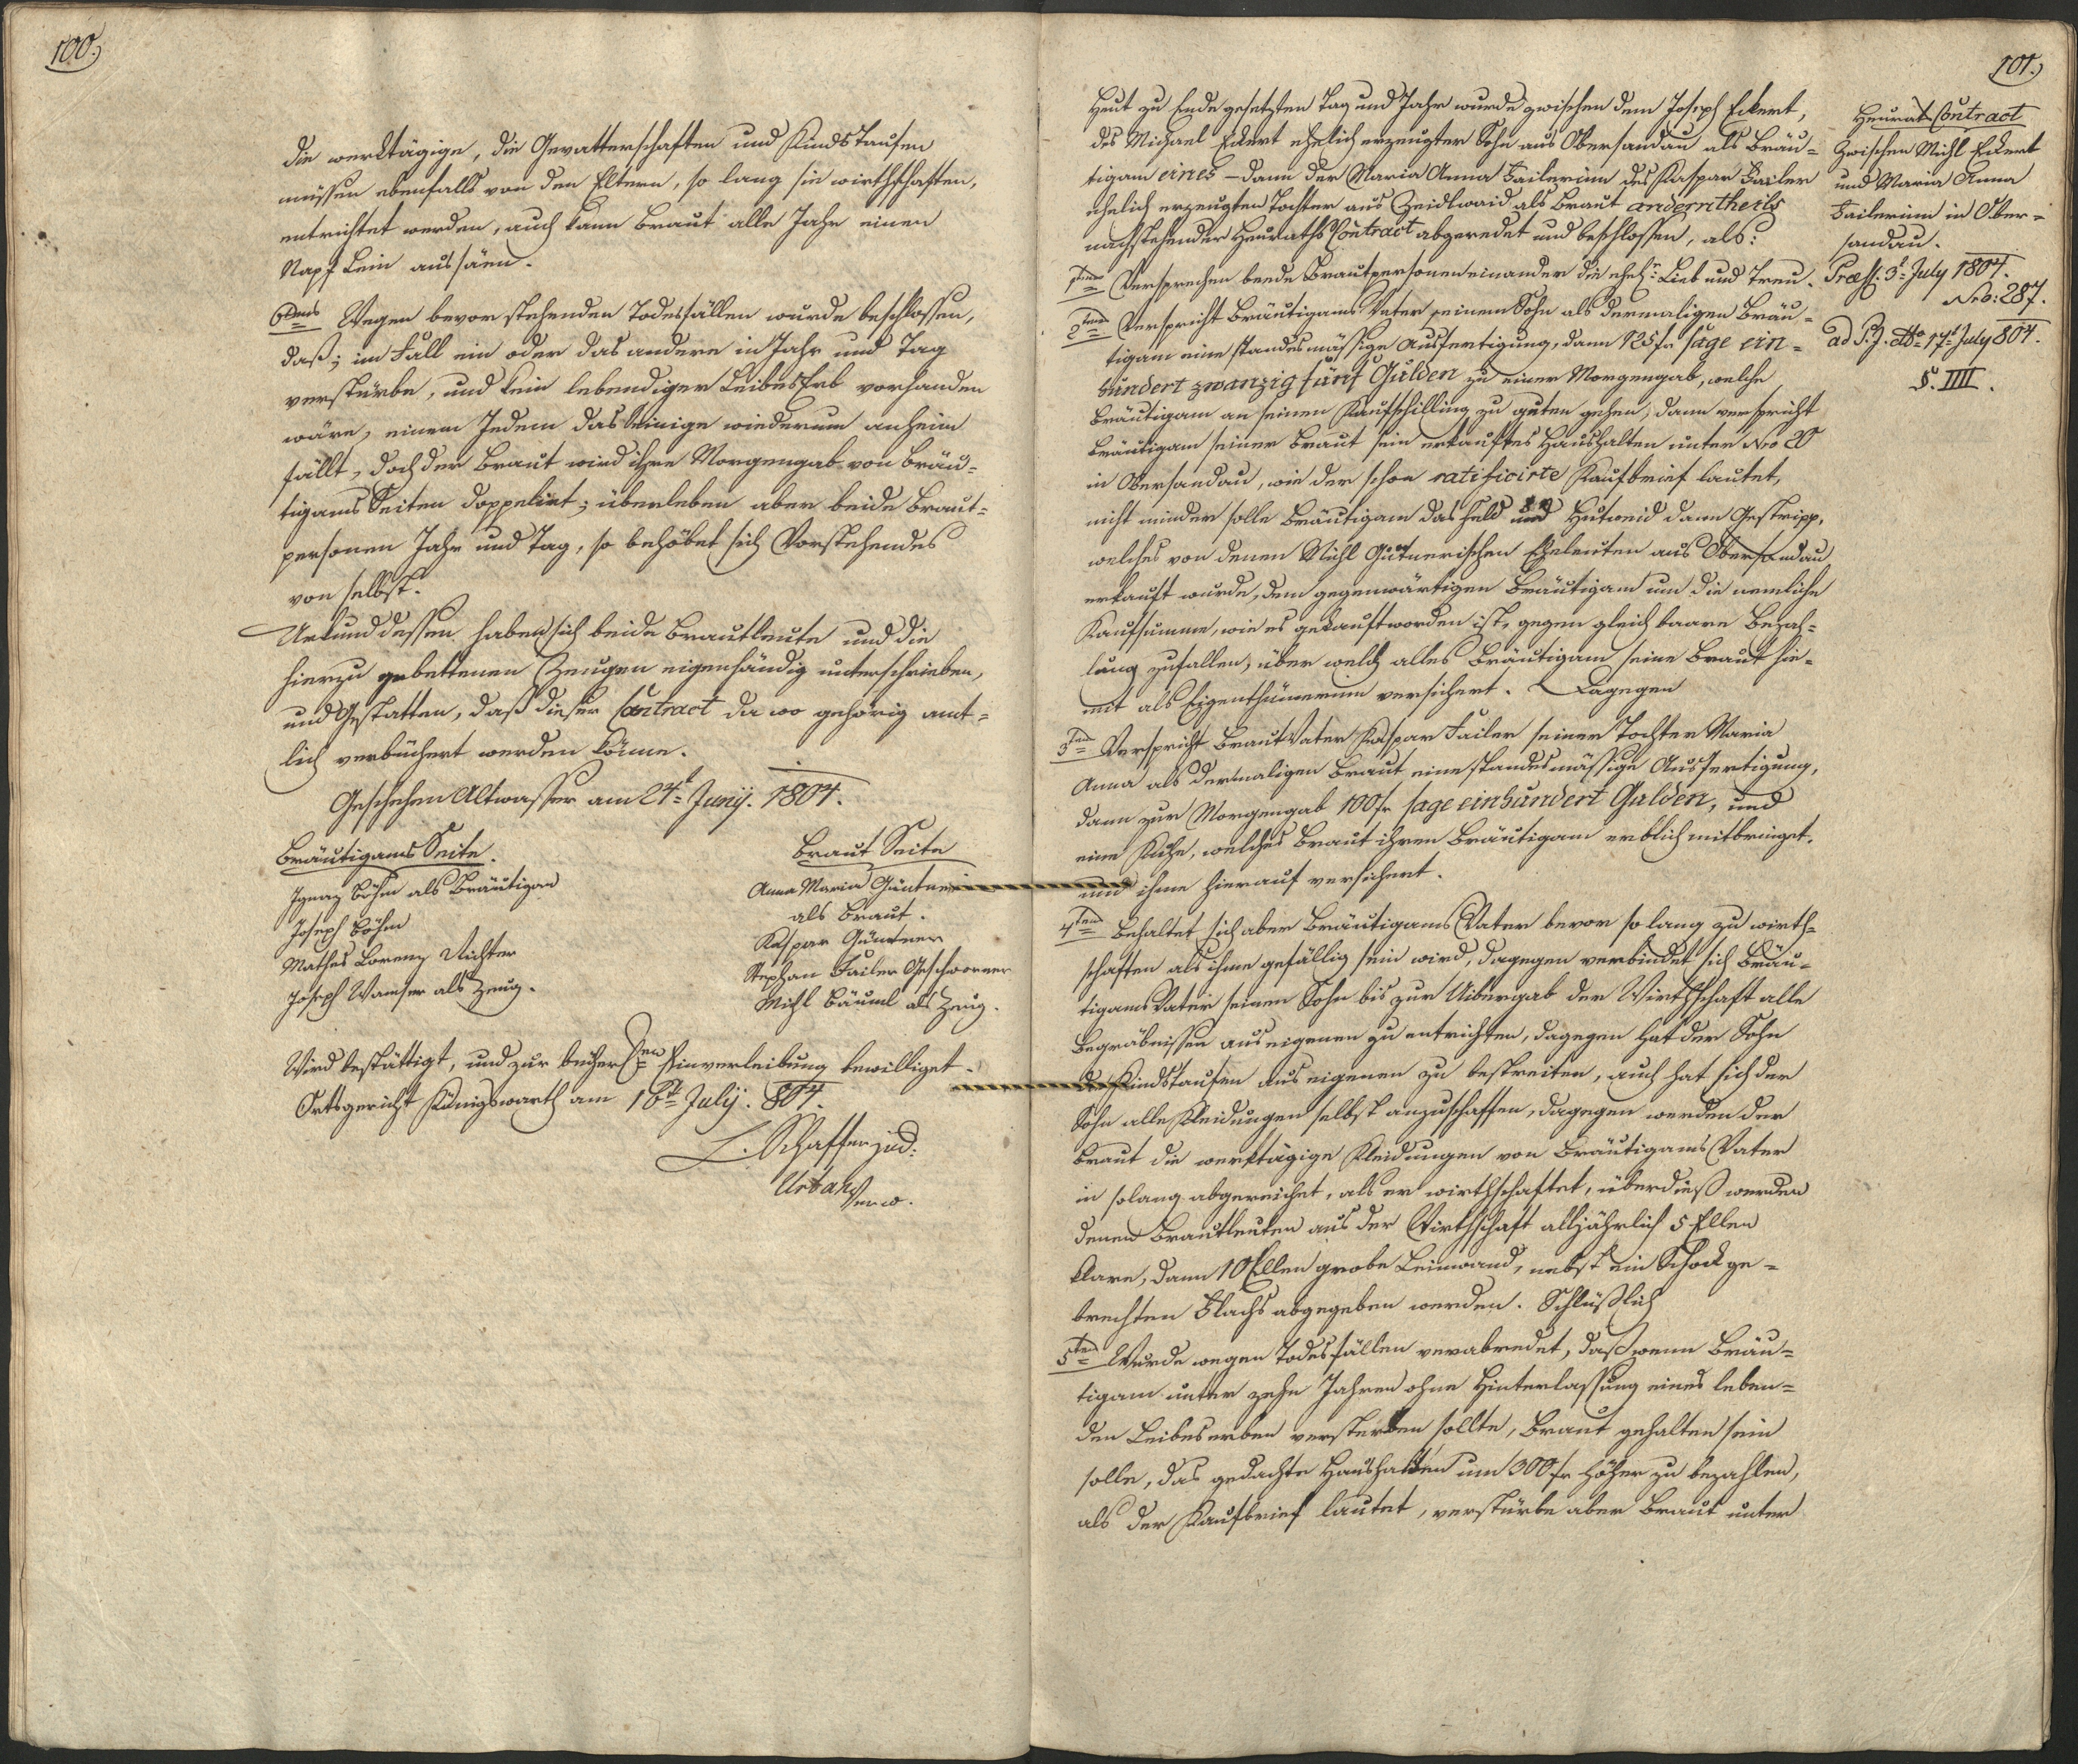 100.)
die werktägige, die Gevatterschaften und Kindstaufen
müssen ebenfalls von den Eltern, so lang sie wirthschaften,
entrichtet werden, auch kann Braut alle Jahr einen
Napf Lein aussäen.
6tens Wegen bevorstehenden Todesfällen wurde beschlossen,
daß; im Fall ein oder das andere in Jahr und Tag
verstürbe, und kein lebendiger Leibes Erb vorhanden
wäre, einem Jedem das Seinige wiederum anheim
fällt, doch der Braut wird ihre Morgengab von Bräu-
tigams Seiten doppelirt; überleben aber beide Braut-
personen Jahr und Tag, so behöbet sich Vorstehendes
von selbst.
Urkund dessen haben sich beide Brautleute und die
hierzu gebettenen Zeugen eigenhändig unterschrieben,
und Gestatten, daß dieser Contract da wo gehörig amt-
lich verbüchert werden könne.
Geschehen Altwasser am 24t Junÿ. 1804.
Bräutigams Seite.
Ignaz Böhm als Bräutigam
Joseph Böhm
Mathes Lorenz Richter
Joseph Wamser als Zeug.
Braut Seite
Anna Maria Güntner
als Braut.
Kaspar Güntner
Stephan Failer Geschworner
Michl Bäuml als Zeug.
Wird bestättigt, und zur bücherlen Einverleibung bewilliget.
Ortsgericht Königswarth am 16t Julÿ. 804.
L. Schaffer jud:
Urban
Verw.
101.)
Heut zu Ende gesetzten Tag und Jahr wurde zwischen dem Joseph Eckert,
des Michael Eckert ehelich erzeugter Sohn aus Obersandau als Bräu-
tigam eines – dann der Maria Anna Failerinn des Kaspar Failer
ehelich erzeugten Tochter aus Zeidlwaid als Braut anderntheils
nachstehender Heuraths Contract abgeredet und beschlossen, als:
1tens Versprechen beede Brautpersonen einander die ehel: Lieb und Treu.
2tens Verspricht Bräutigams Vater seinem Sohn als dermaligen Bräu-
tigam eine standesmässige Ausfertigung, dann 125 fr sage ein-
hundert zwanzig fünf Gulden zu einer Morgengab, welche
Bräutigam an seinen Kaufschilling zu guten gehen, dann verspricht
Bräutigam seiner Braut sein erkauftes Haushalten unter Nro 20
in Obersandau, wie der schon ratificirte Kaufbrief lautet,
nicht minder solle Bräutigam das Feld und Hutweid dann Gestripp,
welches von denen Michl Güntnerischen Eheleuten aus Obersandau
erkauft wurde, dem gegenwärtigen Bräutigam um die nemliche
Kaufsumme, wie es gekauft worden ist, gegen gleich baare Bezah-
lung zufallen, über welch alles Bräutigam seine Braut hie-
mit als Eigenthümerinn versichert. Dagegen
3tens Verspricht Braut Vater Kaspar Failer seiner Tochter Maria
Anna als dermaligen Braut eine standesmässige Ausfertigung,
dann zur Morgengab 100 fr sage einhundert Gulden, und
eine Kuhe, welches Braut ihren Bräutigam erblich mitbringet,
und ihme hierauf versichert.
4tens Behaltet sich aber Bräutigams Vater bevor so lang zu wirth-
schaften als ihme gefällig sein wird, dagegen verbindet sich Bräu-
tigams Vater seinem Sohn bis zur Uibergab der Wirthschaft alle
Begräbnissen aus eigenen zu entrichten, dagegen hat der Sohn
Kindstaufen aus eigenen zu bestreiten, auch hat sich der
Sohn alle Kleidungen selbst anzuschaffen, dagegen werden der
Braut die werktägige Kleidungen von Bräutigams Vater
in solang abgereichet, als er wirthschaftet, überdieß werden
denen Brautleuten aus der Wirthschaft alljährlich 5 Ellen
klare, dann 10 Ellen grobe Leinwand, nebst ein Schock ge-
brechten Flachs abgegeben werden. Schlüßlich
5tens Wurde wegen Todesfällen verabredet, daß wenn Bräu-
tigam unter zehn Jahren ohne Hinterlassung eines leben-
den Leibeserben versterben sollte, Braut gehalten sein
solle, das gedachte Haushalten um 300 fr höher zu bezahlen,
als der Kaufbrief lautet, verstürbe aber Braut unter
Heurat Contract
Zwischen Michl Eckert
und Maria Anna
Failerinn in Ober-
sandau.
Præss. 3t July 1804.
Nro: 287.
ad P. J. dto 17t July 804.
§. IIII.